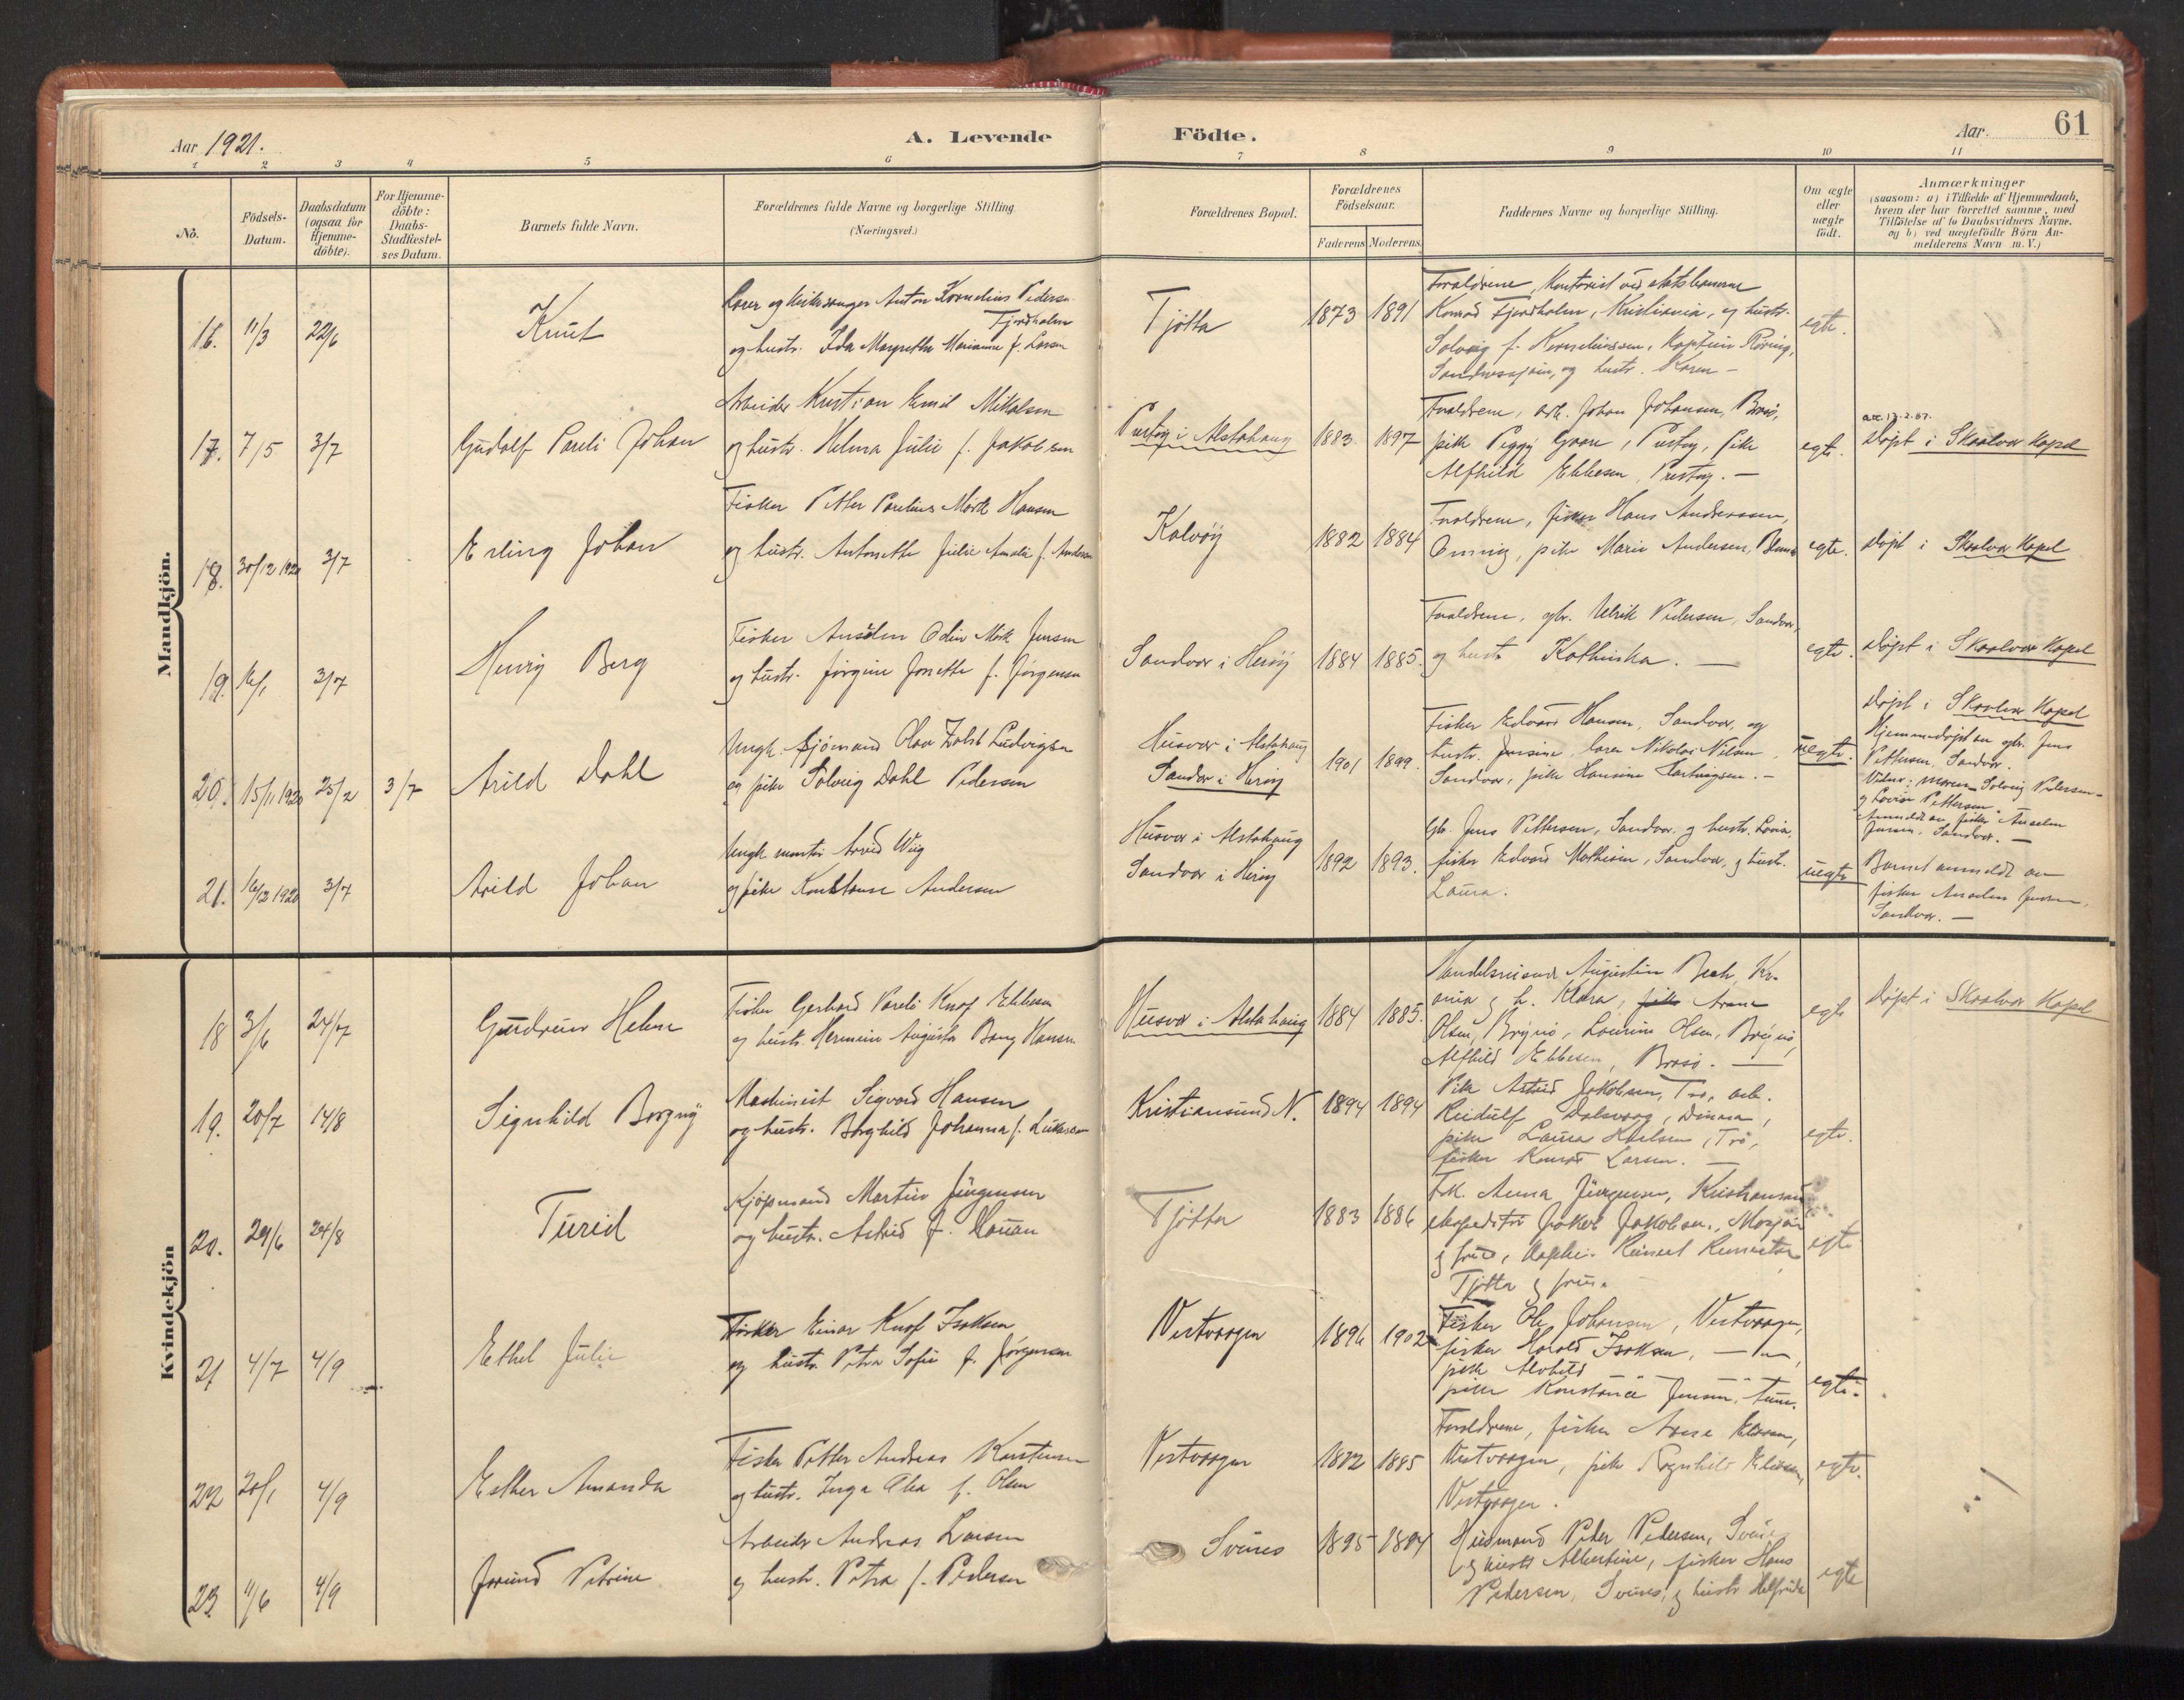 Aar 1921.
A. Levende
Födte.
Aar.
61
1 2 3 4 5 6 7 8 9 10 11
No.
Födsels-
Datum.
Daabsdatum
(ogsaa for
Hjemme-
döbte).
For Hjemme-
döbte:
Daabs-
Stadfæstel-
ses Datum.
Barnets fulde Navn.
Forældrenes fulde Navne og borgerlige Stilling
(Næringsvei.)
Forældrenes Bopæl.
Forældrenes
Födselsaar.
Faderens Moderens
Faddernes Navne og borgerlige Stilling.
Om ægte
eller
uægte
födt.
Anmærkninger
(saasom: a) i Tilfælde af Hjemmedaab,
hvem der har forrettet samme, med
Tilföielse af to Daabsvidners Navne.
og b) ved uægtefödte Börn An-
melderens Navn m. V.)
Mandkjön.
16. 11/3 22/6
Knut
Lærer og kirkesanger Anton Kornelius Pedersen
Fjordholm
og hustr. Ida Margrethe Marianne f. Larsen
Tjötta
1873 1891
Forældrene, Kontorist ved statsbanerne
Konrad Fjordholm, Kristiania, og hustr.
Solveig f. Korneliussen, Kaptein Röring,
Sandnessjöen, og hustr. Karen –
egte.
17. 7/5 3/7
Gudolf Pauli Johan
Arbeider Kristian Emil Mikalsen
og hustr. Helma Julie f. Jakobsen
i Alstahaug
1883 1897
Forældrene, arb. Johan Johansen, Brasö,
pike Peggy
Alfhild Ebbesen
egte.
att. 17.2.67.
döpt i Skaalvær Kapel
18. 30/12 1920 3/7
Erling Johan
Fisker Petter Paulius Mörk Hansen
og hustr. Antonette Julie Amalie f. Andersen
Kalvöy
1882 1884
Forældrene, fisker Hans Andreassen,
pike Marie Andersen
egte.
döpt i Skaalvær Kapel
19. 3/7
Henry Berg
Fisker Anselm Odin Mörk Jensen
og hustr. Jörgine Jonette f. Jörgensen
Sandvær i Heröy
1884 1885.
Forældrene, gbr. Ulrik Pedersen, Sandvær,
og hustr. Kathinka. –
egte.
döpt i Skaalvær Kapel
20. 15/11 1920 25/2 3/7
Arild Dahl
Ungk. sjömand Olav Ludvigsen
og pike Solveig Dahl Pedersen
Husvær i Alstahaug
Sandvær i Heröy
1901 1899.
Fisker Edvard Hansen, Sandvær, og
hustr. Jensine, lærer Nikolai Nilsen,
Sandvær, pike Hansine Hartvigsen. –
uegte.
döpt i Skaalvær Kapel
Hjemmedöpt av gbr. Jens
Pettersen, Sandvær.
Vidner: Moren Solveig Pedersen
og Lovise Pettersen.
Anmeldt av fisker Anselm
Jensen, Sandvær. –
21. 16/12 1920 3/7
Arild Johan
Ungk. montör Arvid Wiig
og pike Konstanse Andersen
Husvær i Alstahaug
Sandvær i Heröy
1892 1893.
Gbr. Jens Pettersen, Sandvær, og hustr. Lovise,
fisker Edvard Mathisen, Sandvær, og hustr.
Laura.
uegte
Barnet anmeldt av
fisker Anselm Jensen,
Sandvær. –
Kvindekjön
18 3/6 24/7
Gudrun Helene
Fisker Gerhard Pareli Knof Ebbesen
og hustr. Hermine Augusta Bang Hansen
Husvær i Alstahaug
1884 1885.
Handelsreisende Augustin Bech, Kr-
ania og h. Klara,
Olsen, Brönnö, Laurine Olsen, Brönnö,
Alfhild Ebbesen, Brasö. –
egte
döpt i Skaalvær Kapel
19. 20/7 14/8
Signhild Borgny
Maskinist Sigvard Hansen
og hustr. Borghild Johanna f. Lukassen
Kristiansund N.
1894 1894
Pike Astrid Jakobsen, Tro, arb.
Reidulf Dalsvaag, Dönna,
pike Laura Karlsen, Tro,
fisker Konrad Larsen. –
egte.
20. 29/6 24/8
Turid
Kjöpmand Martin Jürgensen
og hustr. Astrid f.
Tjötta
1883 1886
Frk. Anna Jürgensen, Kristiansund
ekspeditör Jakob Jakobsen, Mosjöen
og frue,
Tjötta og frue.
egte
21 4/7 4/9
Ethel Julie
Fisker Einar Knof Isaksen
og hustr. Petra Sofie f. Jörgensen
Vestvaagen
1896 1902
Fisker Ole Johansen, Vestvaagen,
fisker Harald Isaksen, – " –,
pike Alvhild – " –
pike Konstanse Jensen,
egte.
22 20/1 4/9
Esther Amanda
Fisker Petter Andreas Kristensen
og hustr. Inga Alea f. Olsen
Vestvaagen
1882 1885
Forældrene, fisker
Vestvaagen, pike Ragnhild
Vestvaagen.
egte.
23. 11/6 4/9
Jorund Petrine
Arbeider Andreas Larsen
og hustr. Petra f. Pedersen
Svines
1895 1894
Husmand Peder Pedersen, Svines
og hustr. Albertine, fisker Hans
Pedersen, Svines, og hustr. Helfrida
egte